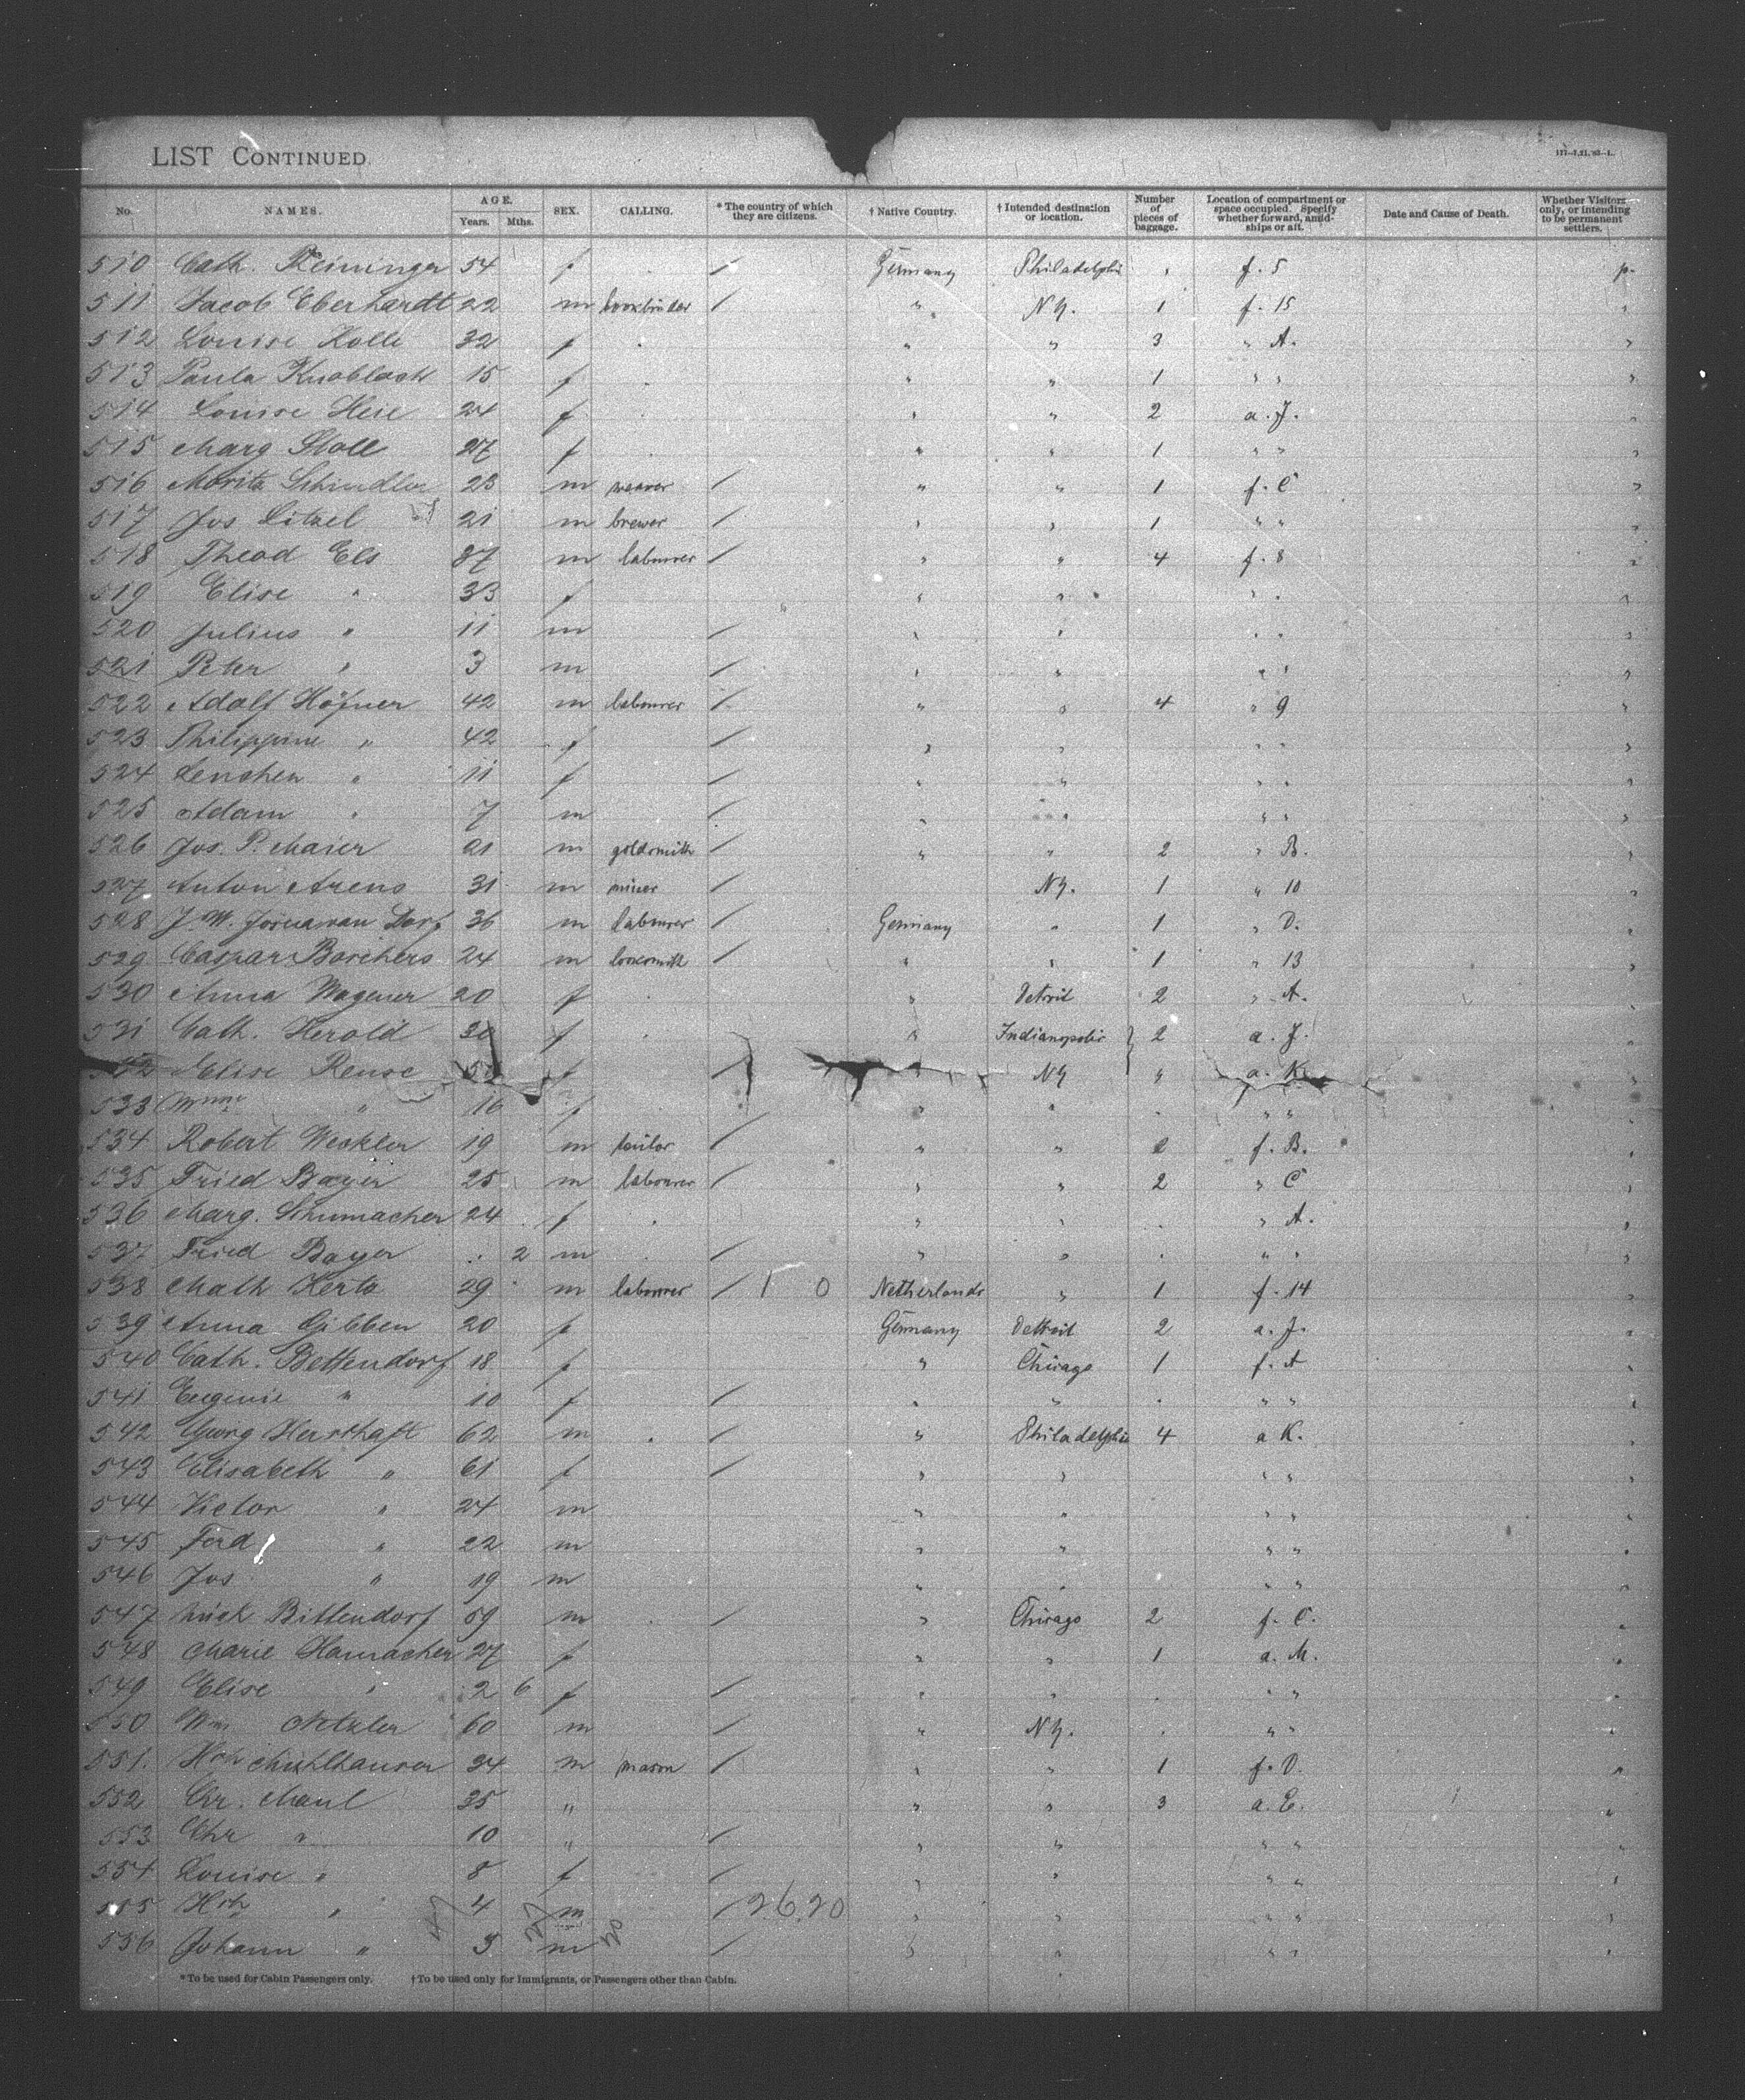 LIST CONTINUED.
117—7.21.'93—1.
No. NAMES. AGE. Years. Mths. SEX. CALLING. * The country of which they are citizens. † Native Country. † Intended destination or location. Number of pieces of baggage. Location of compartment or space occupied. Specify whether forward, amidships or aft. Date and Cause of Death. Whether Visitors only, or intending to be permanent settlers.
510 Cath. Reininger 54 f / Germany Philadelphia f. 5 p.
511 Jacob Eberhardt 22 m bookbinder / " N.Y. 1 f. 15 "
512 Louise Kolle 32 f " " 3 " A. "
513 Paula Knobloch 15 f " " 1 " " "
514 Louise 24 f " " 2 a. J. "
515 Marg Stoll 27 f " " 1 " " "
516 Moritz Schindler 23 m weaver / " " 1 f. C "
517 Jos Litzel 21 m brewer / " " 1 " " "
518 Theod Els 37 m labourer / " " 4 f. 8 "
519 Elise " 33 f " " " " "
520 Julius " 11 m / " " " " "
521 Peter " 3 m / " " " " "
522 Adolf Höfner 42 m labourer / " " 4 " 9 "
523 Philippine " 42 f / " " " " "
524 Lenchen " 11 f / " " " " "
525 Adam " 7 m / " " " " "
526 Jos. P. Maier 21 m goldsmith / " " 2 " B. "
527 Anton Arens 31 m miner / N.Y. 1 " 10 "
528 J. W. Dorf 36 m labourer / Germany " 1 " D. "
529 Caspar Borchers 24 m locksmith / " " 1 " 13 "
530 Anna Wagener 20 f " Detroit 2 " A. "
531 Cath. Herold f " Indianopolis 2 a. J. "
532 Elise Reuse f / " N.Y " a. K. "
533 " 16 f " " " " "
534 Robert Weckler 19 m tailor / " " 2 f. B. "
535 Fried Bayer 25 m labourer / " " 2 " C "
536 Marg. Schumacher 24 f " " " A. "
537 Fried Bayer 2 m / " " " " "
538 Math Kerta 29 m labourer / 1 0 Netherlands " 1 f. 14 "
539 Anna Gibben 20 f Germany Detroit 2 a. J. "
540 Cath. Bettendorf 18 f " Chicago 1 f. A "
541 Eugenie " 10 f / " " " " "
542 Georg Herrschaft 62 m / " Philadelphia 4 a K. "
543 Elisabeth " 61 f / " " " " "
544 Victor " 24 m " " " " "
545 Ferd " 22 m " " " " "
546 Jos " 19 m " " " " "
547 Nick Bittendorf 59 m / " Chicago 2 f. C. "
548 Marie Hamacher 27 f " " 1 a. M. "
549 Elise " 2 6 f / " " " " "
550 Wm Metzler 60 m / " N.Y. " " "
551. Hch Mühlhauser 34 m mason / " " 1 f. D. "
552 Chr. Maul 35 " " " 3 a. E. "
553 Chr " 10 " / " " " " "
554 Louise " 8 f / " " " " "
555 Hch " 4 m / 26.20 " " " " "
556 Johann " 3 m / " " " " "
* To be used for Cabin Passengers only. † To be used only for Immigrants, or Passengers other than Cabin.